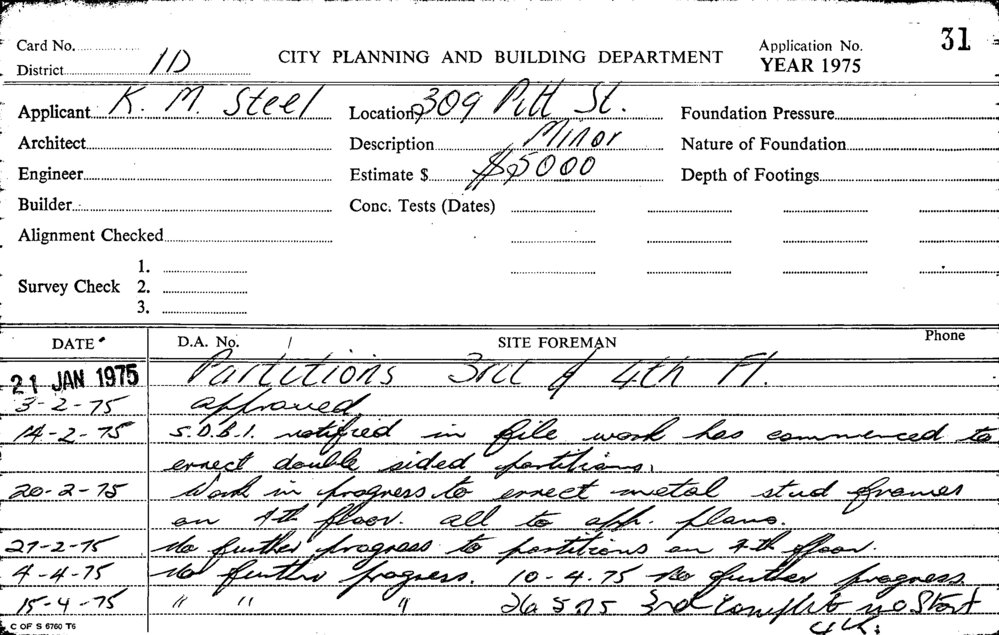 Card No.
31
District 1D
CITY PLANNING AND BUILDING DEPARTMENT
Application No.
YEAR 1975
Applicant K. M. Steel
Location 309 Pitt St.
Foundation Pressure
Architect
Description Minor
Nature of Foundation
Engineer
Estimate $ $5000
Depth of Footings
Builder
Conc. Tests (Dates)
Alignment Checked
1.
Survey Check 2.
3.
DATE
D.A. No.
SITE FOREMAN
Phone
21 JAN 1975 Partitions 3rd & 4th Fl.
3-2-75 approved
14-2-75 S.D.B.I. notified in file work has commenced to
errect double sided partitions.
20-2-75 Work in progress to errect metal stud frames
on 4th floor. all to app. plans.
27-2-75 No further progress to partitions on 4th floor.
4-4-75 No further progress. 10-4.75 No further progress
15-4-75 " " " 26 5 75 3rd Complete no Start
4th.
C OF S 6760 T6